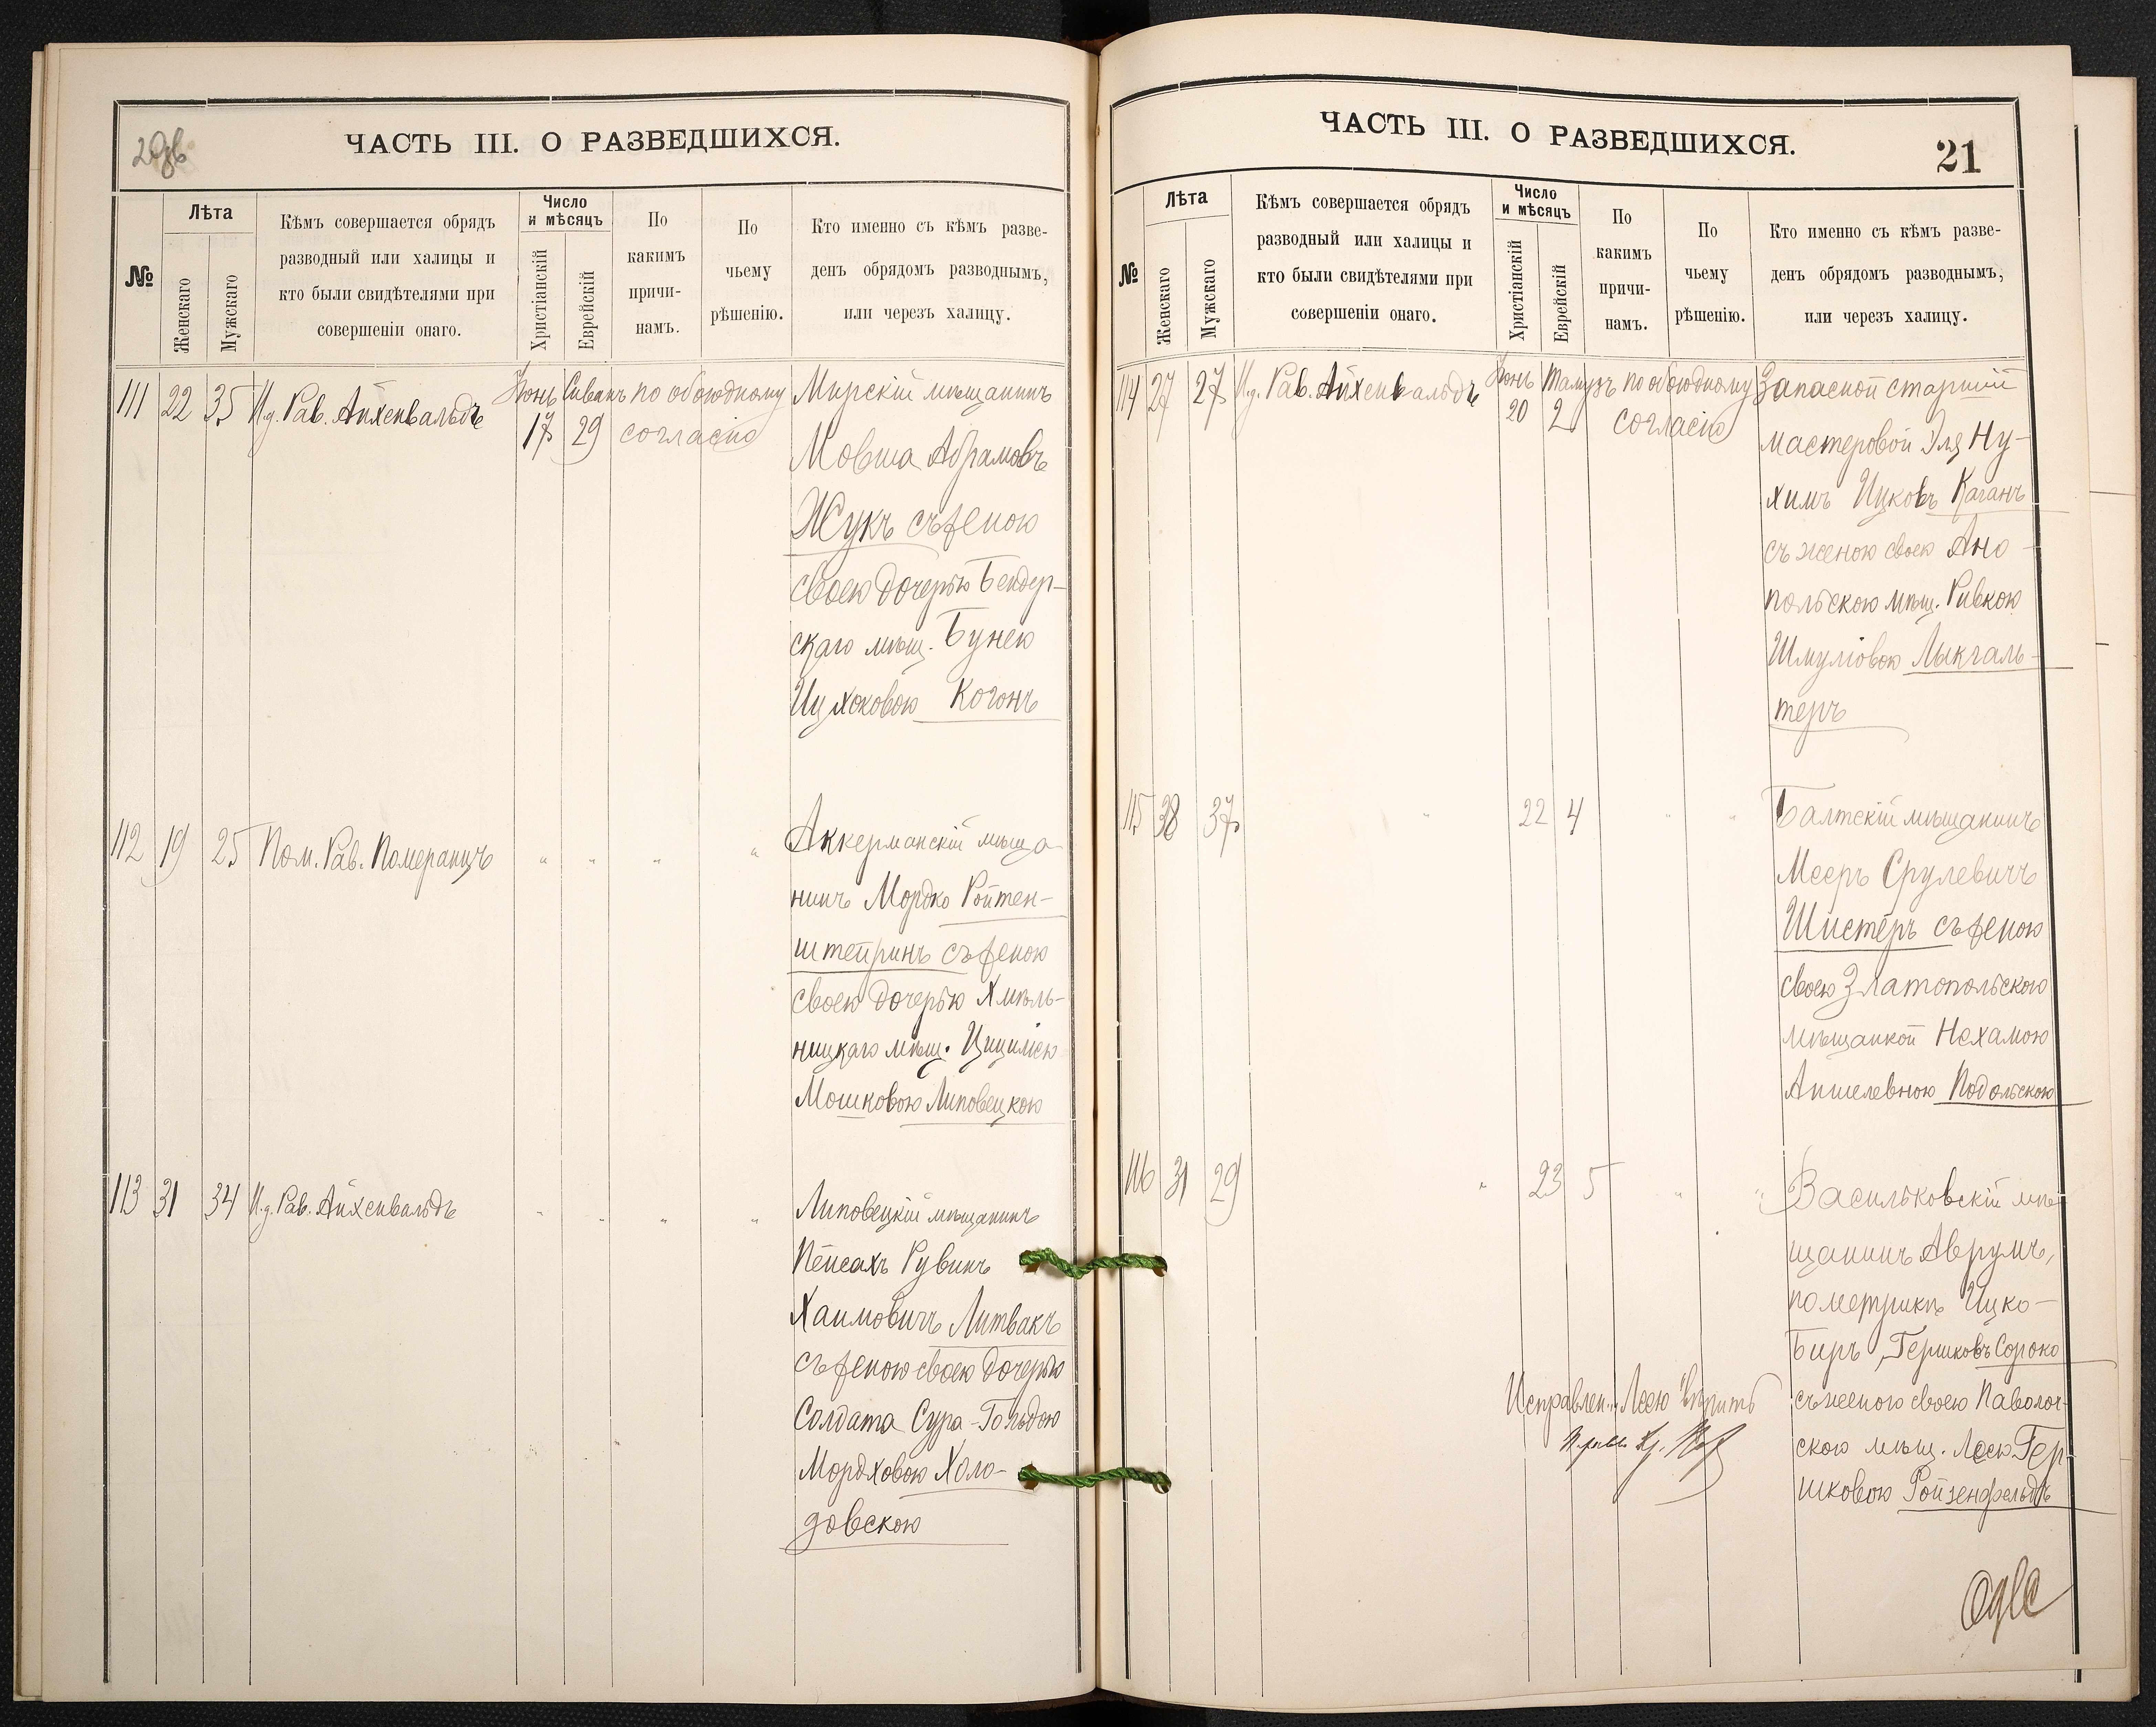 20об
ЧАСТЬ III. О РАЗВЕДШИХСЯ.
№
Лѣта
Женскаго
Мужскаго
Кѣмъ совершается обрядъ
разводный или халицы и
кто были свидѣтелями при
совершеніи онаго.
Число
и мѣсяцъ
Христіанскій
Еврейскій
По
какимъ
причи-
намъ.
По
чьему
рѣшенію.
Кто именно съ кѣмъ разве-
денъ обрядомъ разводнымъ,
или черезъ халицу.
111 22 35 И.д. Рав. Айхенвальдъ
Іюнь Сиванъ
17 29
по обоюдному
согласію
Мирскій мѣщанинъ
Мовша Абрамовъ
Жукъ съ женою
своею дочерью Бендер-
скаго мѣщ. Бунею
Ицхоковою Когонъ
112 19 25 Пом. Рав. Померанцъ " " " "
Аккерманскій мѣща-
нинъ Мордко Ройтен-
штейринъ съ женою
своею дочерью Хмѣль-
ницкаго мѣщ. Цицилею
Мошковою Липовецкою
113 31 34 И.д. Рав. Айхенвальдъ " " " "
Липовецкій мѣщанинъ
Пейсахъ Рувинъ
Хаимовичъ Литвакъ
съ женою своею дочерью
Солдата Сура-Гольдою
Мордховою Холо-
довскою
ЧАСТЬ III. О РАЗВЕДШИХСЯ.
21
№
Лѣта
Женскаго
Мужскаго
Кѣмъ совершается обрядъ
разводный или халицы и
кто были свидѣтелями при
совершеніи онаго.
Число
и мѣсяцъ
Христіанскій
Еврейскій
По
какимъ
причи-
намъ.
По
чьему
рѣшенію.
Кто именно съ кѣмъ разве-
денъ обрядомъ разводнымъ,
или черезъ халицу.
114 27 27 И.д. Рав. Айхенвальдъ
Іюнь Тамузъ
20 2
по обоюдному
согласію
Запасной старшій
мастеровой Эля Ну-
химъ Ицковъ Каганъ
съ женою своею Ано-
польскою мѣщ. Ривкою
Шмуліовою Лыкгаль-
теръ
115 38 37 " 22 4 " "
Балтскій мѣщанинъ
Мееръ Срулевичъ
Шистеръ съ женою
своею Златопольскою
мѣщанкой Нехамою
Аншелевною Подольскою
116 31 29 " 23 5 " "
Васильковскій мѣ-
щанинъ Аврумъ,
по метрикѣ Ицко-
Биръ, Гершковъ Сороко
съ женою своею Паволоч-
скою мѣщ. Леею Гер-
шковою Ройзенфельдъ
Исправлен. "Леею" вѣрить